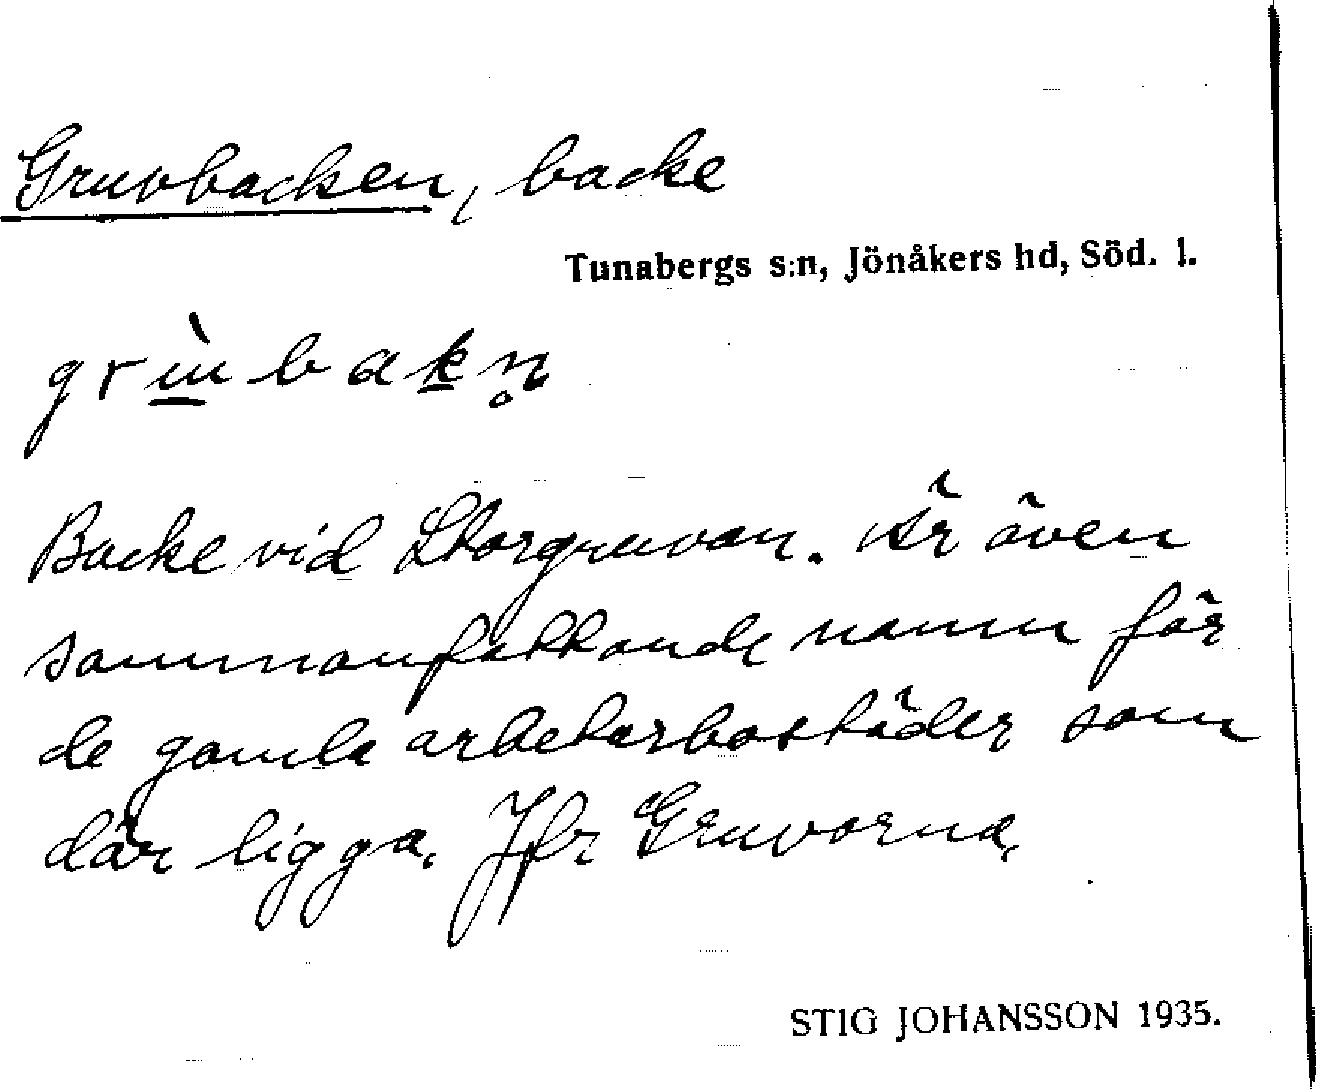 Gruvbacken, backe
Tunabergs s:n, Jönåkers hd, Söd. l.
grɯ̀bakn̥
Backe vid Storgruvan. Är även
sammanfattande namn för
de gamla arbetarbostäder som
där ligga. Jfr Gruvorna.
STIG JOHANSSON 1935.